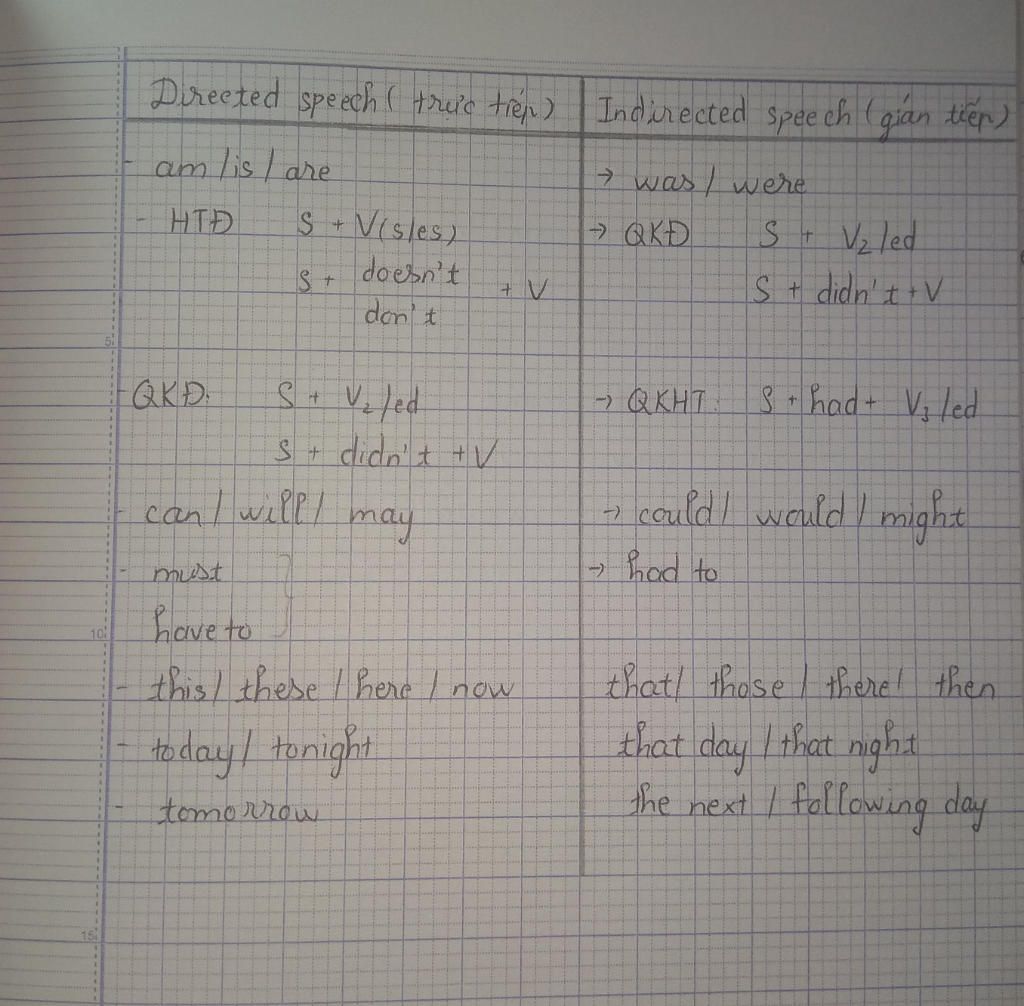 Directed speech ( trực tiếp) Indirected speech (gián tiếp)
- am / is / are → was / were
- HTĐ S + V(s/es) → QKĐ S + V2/ed
S + doesn't + V S + didn't + V
don't
- QKĐ: S + V2/ed → QKHT: S + had + V3/ed
S + didn't + V
- can / will / may → could / would / might
- must → had to
have to
- this / these / here / now that / those / there / then
- today / tonight that day / that night
- tomorrow the next / following day
5
10
15